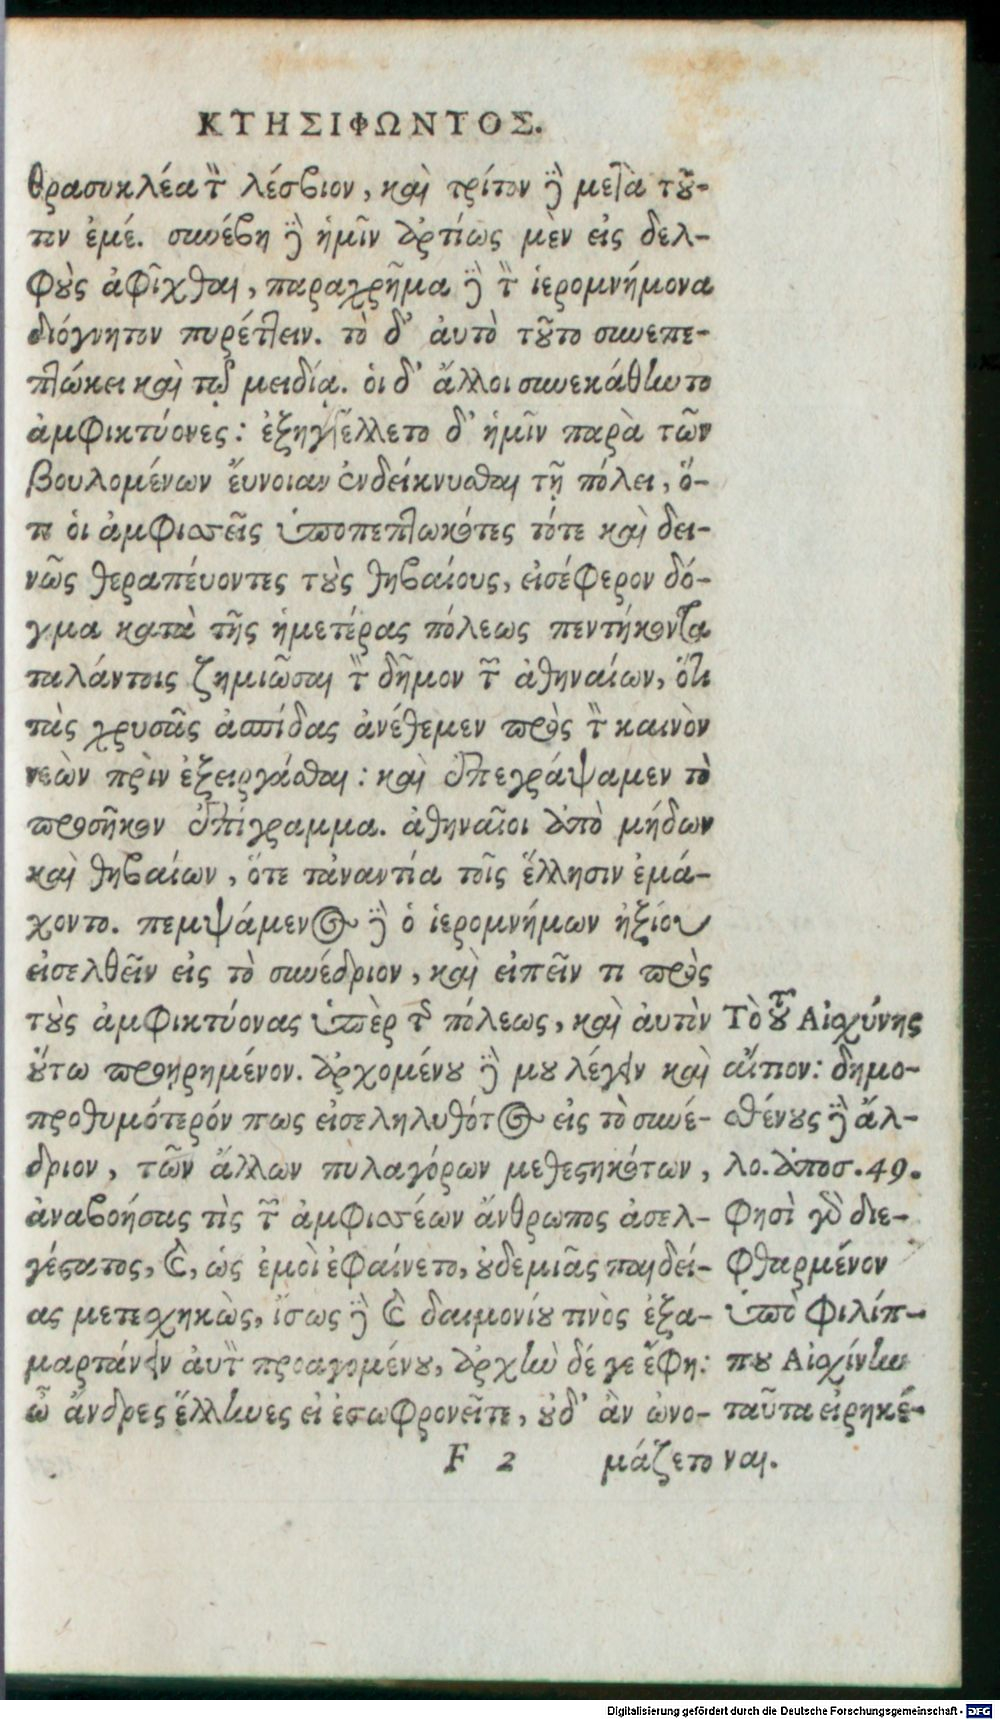 ΚΤΗΣΙΦΩΝΤΟΣ.
θρασυκλέα τὸν λέσβιον, καὶ τρίτον δὲ μετὰ τού-
των ἐμέ. συνέβη δὲ ἡμῖν ἀρτίως μὲν εἰς δελ-
φοὺς ἀφῖχθαι, παραχρῆμα δὲ τὸν ἱερομνήμονα
διόγνητον πυρέττειν. τὸ δ' αὐτὸ τοῦτο συνεπε-
πτώκει καὶ τῷ μειδίᾳ. οἱ δ' ἄλλοι συνεκάθηντο
ἀμφικτύονες: ἐξηγγέλλετο δ' ἡμῖν παρὰ τῶν
βουλομένων ἔυνοιαν ἐνδείκνυσθαι τῇ πόλει, ὅ-
τι ὁι ἀμφισσεῖς ὑποπεπτωκότες τότε καὶ δει-
νῶς θεραπέυοντες τοὺς θηβαίους, εἰσέφερον δό-
γμα κατὰ τῆς ἡμετέρας πόλεως πεντήκοντα
ταλάντοις ζημιῶσαι τὸν δῆμον τῶν ἀθηναίων, ὅτι
τὰς χρυσᾶς ἀσπίδας ἀνέθεμεν πρὸς τὸν καινὸν
νεὼν πρὶν ἐξειργάσθαι: καὶ ἐπεγράψαμεν τὸ
προσῆκον ἐπίγραμμα. ἀθηναῖοι ἀπὸ μήδων
καὶ θηβαίων, ὅτε τἀναντία τοῖς ἕλλησιν ἐμά-
χοντο. πεμψάμενος δὲ ὁ ἱερομνήμων ἠξίου
εἰσελθεῖν εἰς τὸ συνέδριον, καὶ εἰπεῖν τι πρὸς
τοὺς ἀμφικτύονας ὑπὲρ τῆς πόλεως, καὶ ἀυτὸν
ὅυτω προῃρημένον. ἀρχομένου δὲ μου λέγειν καὶ
προθυμότερόν πως εἰσεληλυθότος εἰς τὸ συνέ-
δριον, τῶν ἄλλων πυλαγόρων μεθεστηκότων,
ἀναβοήσας τὶς τῶν ἀμφισσέων ἄνθρωπος ἀσελ-
γέστατος, καὶ, ὡς ἐμοὶ ἐφαίνετο, οὐδεμιᾶς παιδεί-
ας μετεσχηκὼς, ἴσως δὲ καὶ δαιμονίου τινὸς ἐξα-
μαρτάνειν ἀυτὸν προαγομένου, ἀρχὴν δέ γε ἔφη:
ὦ ἄνδρες ἕλληνες εἰ ἐσωφρονεῖτε, οὐδ' ἂν ὠνο-
F 2 μάζετο
Τὸ τοῦ Αἰσχύνης
αἴτιον: δημο-
σθένους δὲ ἄλ-
λο. ἀποσ. 49.
Φησὶ γὰρ διε-
φθαρμένον
ὑπὸ Φιλίπ-
που Αἰσχίνην
ταῦτα εἰρηκέ-
ναι.
Digitalisierung gefördert durch die Deutsche Forschungsgemeinschaft - DFG